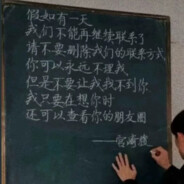 假如有一天
我们不能再继续联系了
请不要删除我们的联系方式
你可以永远不理我，
但是不要让我找不到你
我只要在想你时
还可以查看你的朋友圈
——宫崎骏